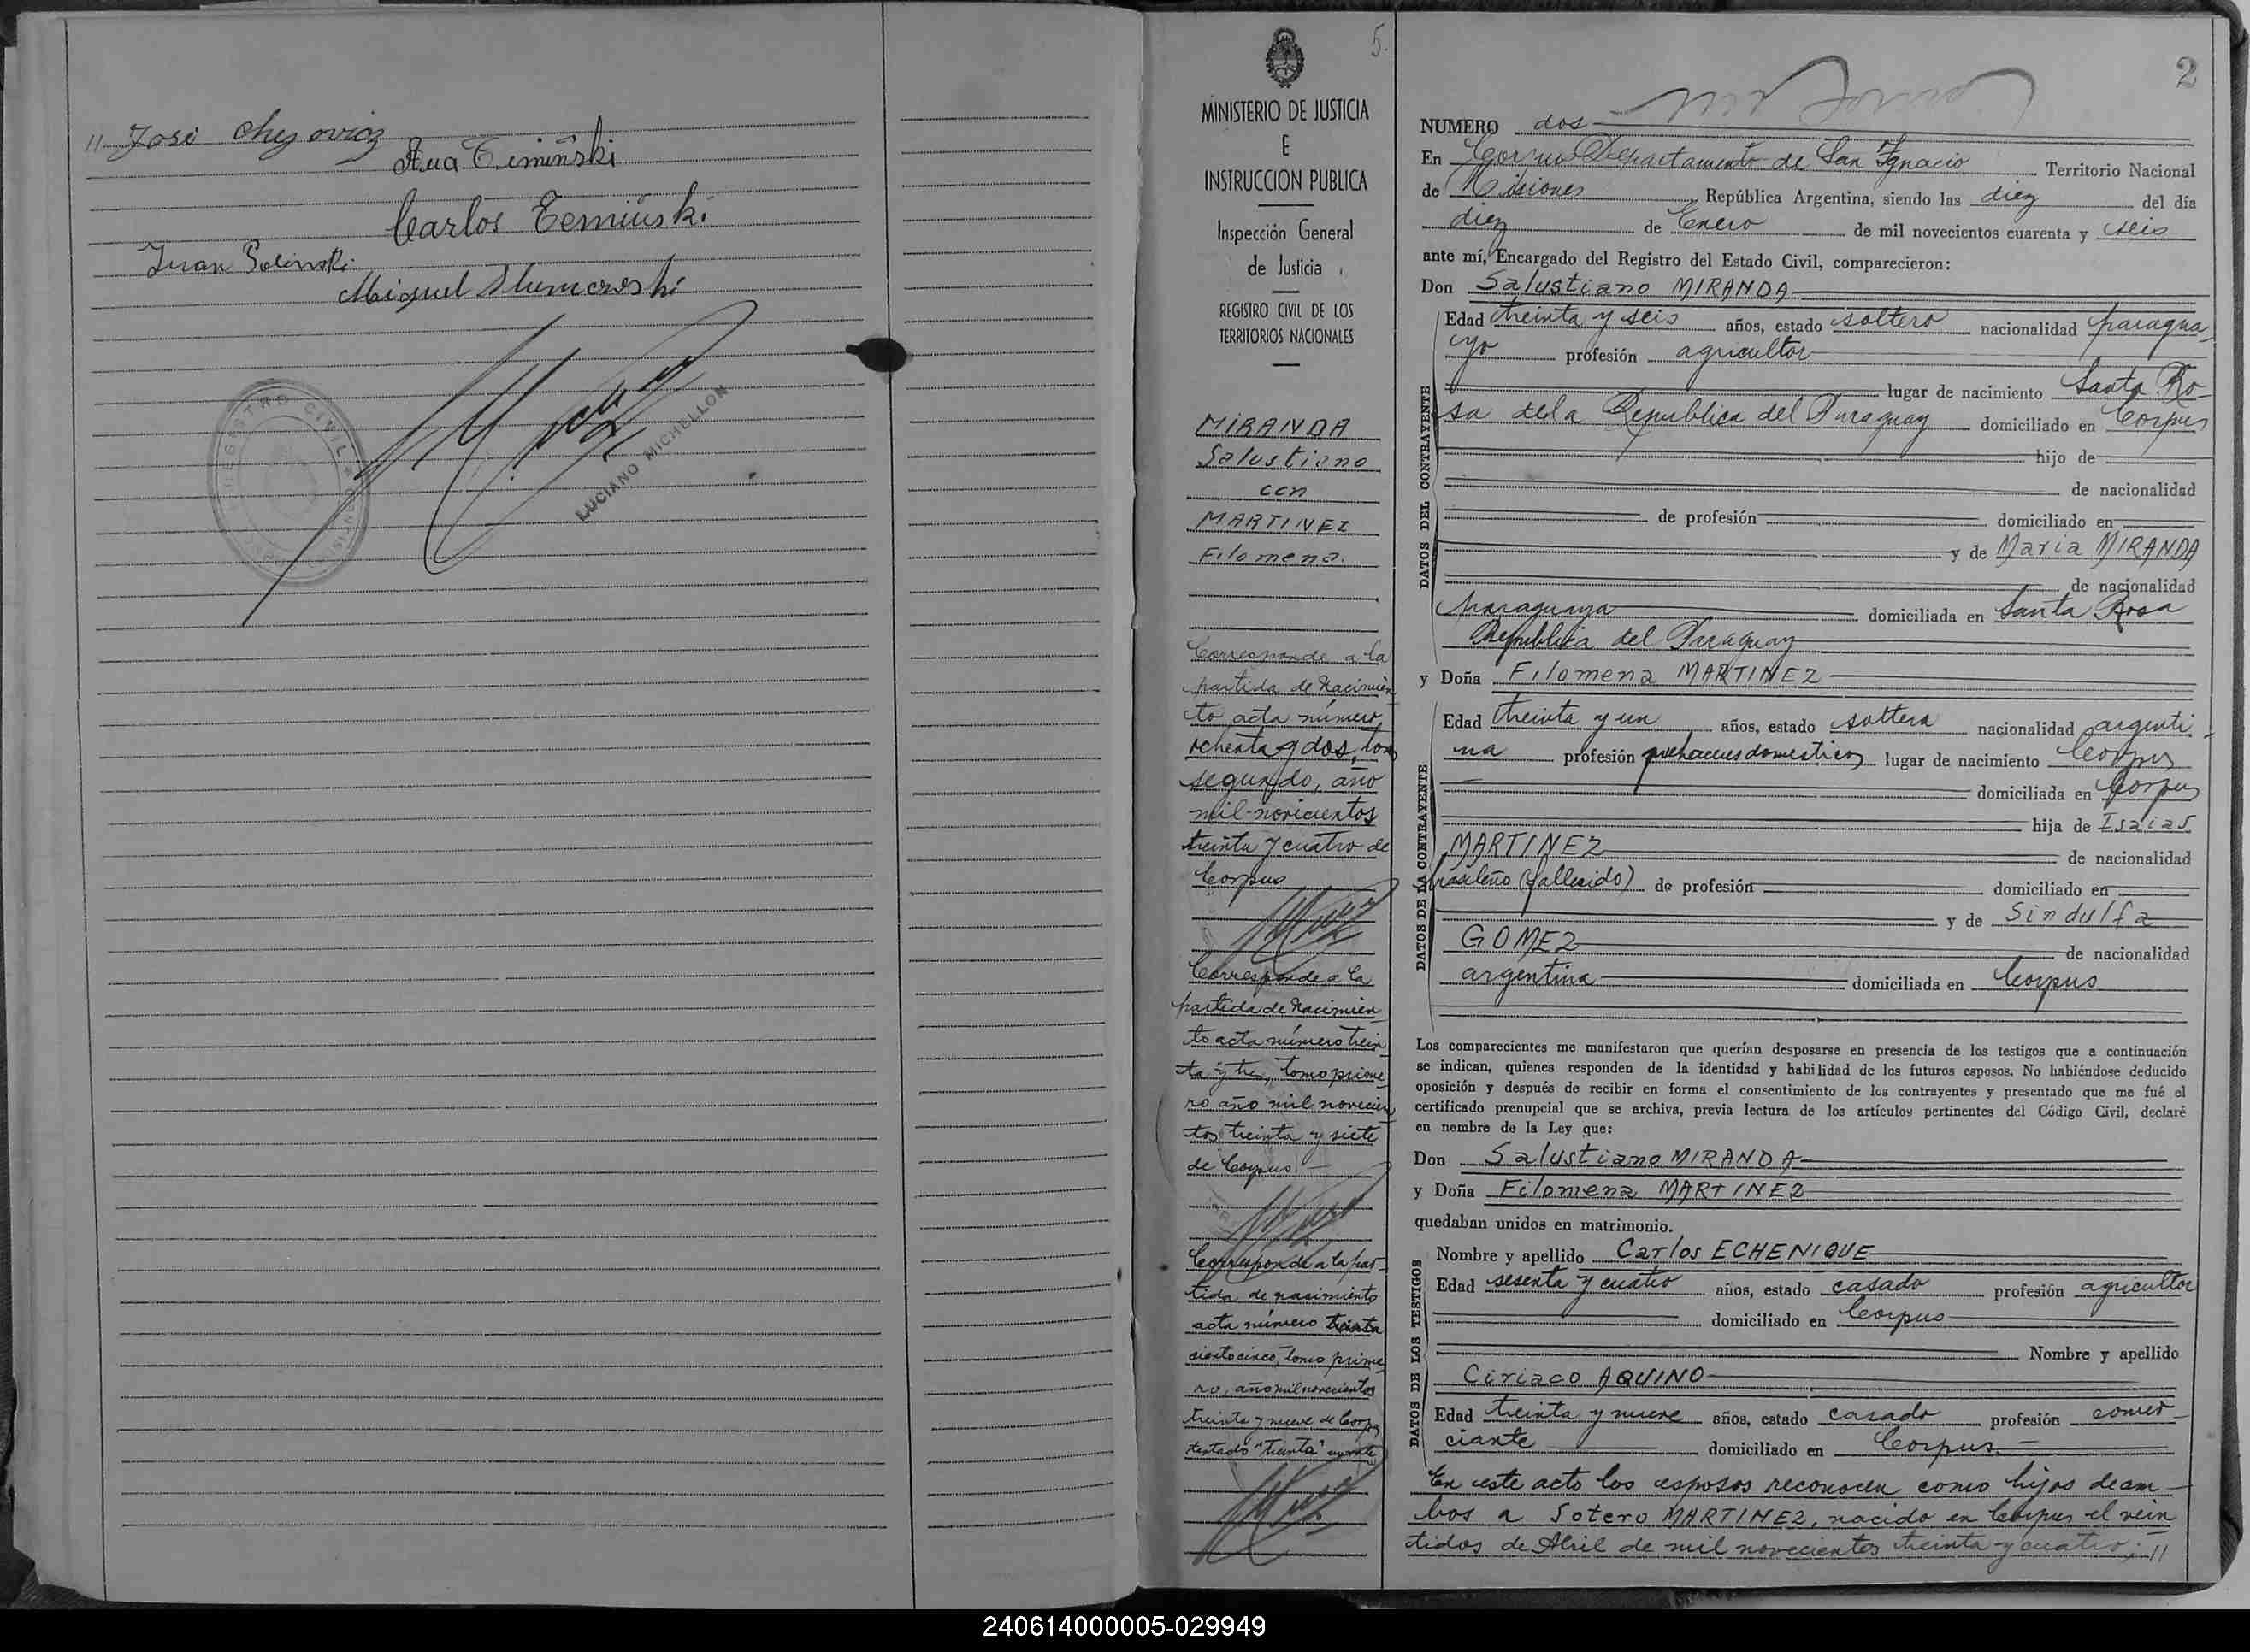 " José Chezovicz
Ana Ceminski
Carlos Ceminski
Juan Polinski
Miguel
REGISTRO CIVIL
LUCIANO MICHELLON
5.
MINISTERIO DE JUSTICIA
E
INSTRUCCION PUBLICA
Inspección General
de Justicia
REGISTRO CIVIL DE LOS
TERRITORIOS NACIONALES
MIRANDA
Salustiano
con
MARTINEZ
Filomena.
Corresponde a la
partida de Nacimien
to acta número
ochenta y dos, tomo
segundo, año
mil novecientos
treinta y cuatro de
Corpus
Corresponde a la
partida de Nacimien
to acta número trein
ta y tres, tomo prime
ro año mil novecien
tos treinta y siete
de Corpus
Corresponde a la par
tida de nacimiento
acta número treinta
ciento cinco, tomo prime
ro, año mil novecientos
treinta y nueve de Corpus
testado "treinta" no vale
2
NUMERO dos
En Corpus Departamento de San Ignacio Territorio Nacional
de Misiones, República Argentina, siendo las diez del día
diez de Enero de mil novecientos cuarenta y seis
ante mí, Encargado del Registro del Estado Civil, comparecieron:
Don Salustiano MIRANDA
DATOS DEL CONTRAYENTE
Edad treinta y seis años, estado soltero nacionalidad paragua
yo profesión agricultor
lugar de nacimiento Santa Ro-
sa de la Republica del Paraguay domiciliado en Corpus
hijo de
de nacionalidad
de profesión domiciliado en
y de Maria MIRANDA
de nacionalidad
paraguaya domiciliada en Santa Rosa
Republica del Paraguay
y Doña Filomena MARTINEZ
DATOS DE LA CONTRAYENTE
Edad treinta y un años, estado soltera nacionalidad argenti-
na profesión quehaceres domesticos lugar de nacimiento Corpus
domiciliada en Corpus
hija de Isaias
MARTINEZ de nacionalidad
brasileño (fallecido) de profesión domiciliado en
y de Sindulfa
GOMEZ de nacionalidad
argentina domiciliada en Corpus
Los comparecientes me manifestaron que querían desposarse en presencia de los testigos que a continuación
se indican, quienes responden de la identidad y habilidad de los futuros esposos. No habiéndose deducido
oposición y después de recibir en forma el consentimiento de los contrayentes y presentado que me fué el
certificado prenupcial que se archiva, previa lectura de los artículos pertinentes del Código Civil, declaré
en nombre de la Ley que:
Don Salustiano MIRANDA
y Doña Filomena MARTINEZ
quedaban unidos en matrimonio.
DATOS DE LOS TESTIGOS
Nombre y apellido Carlos ECHENIQUE
Edad sesenta y cuatro años, estado casado profesión agricultor
domiciliado en Corpus
Nombre y apellido
Ciriaco AQUINO
Edad treinta y nueve años, estado casado profesión comer-
ciante domiciliado en Corpus
En este acto los esposos reconocen como hijos de am-
bos a Sotero MARTINEZ, nacido en Corpus el vein
tidos de Abril de mil novecientos treinta y cuatro; "
240614000005-029949